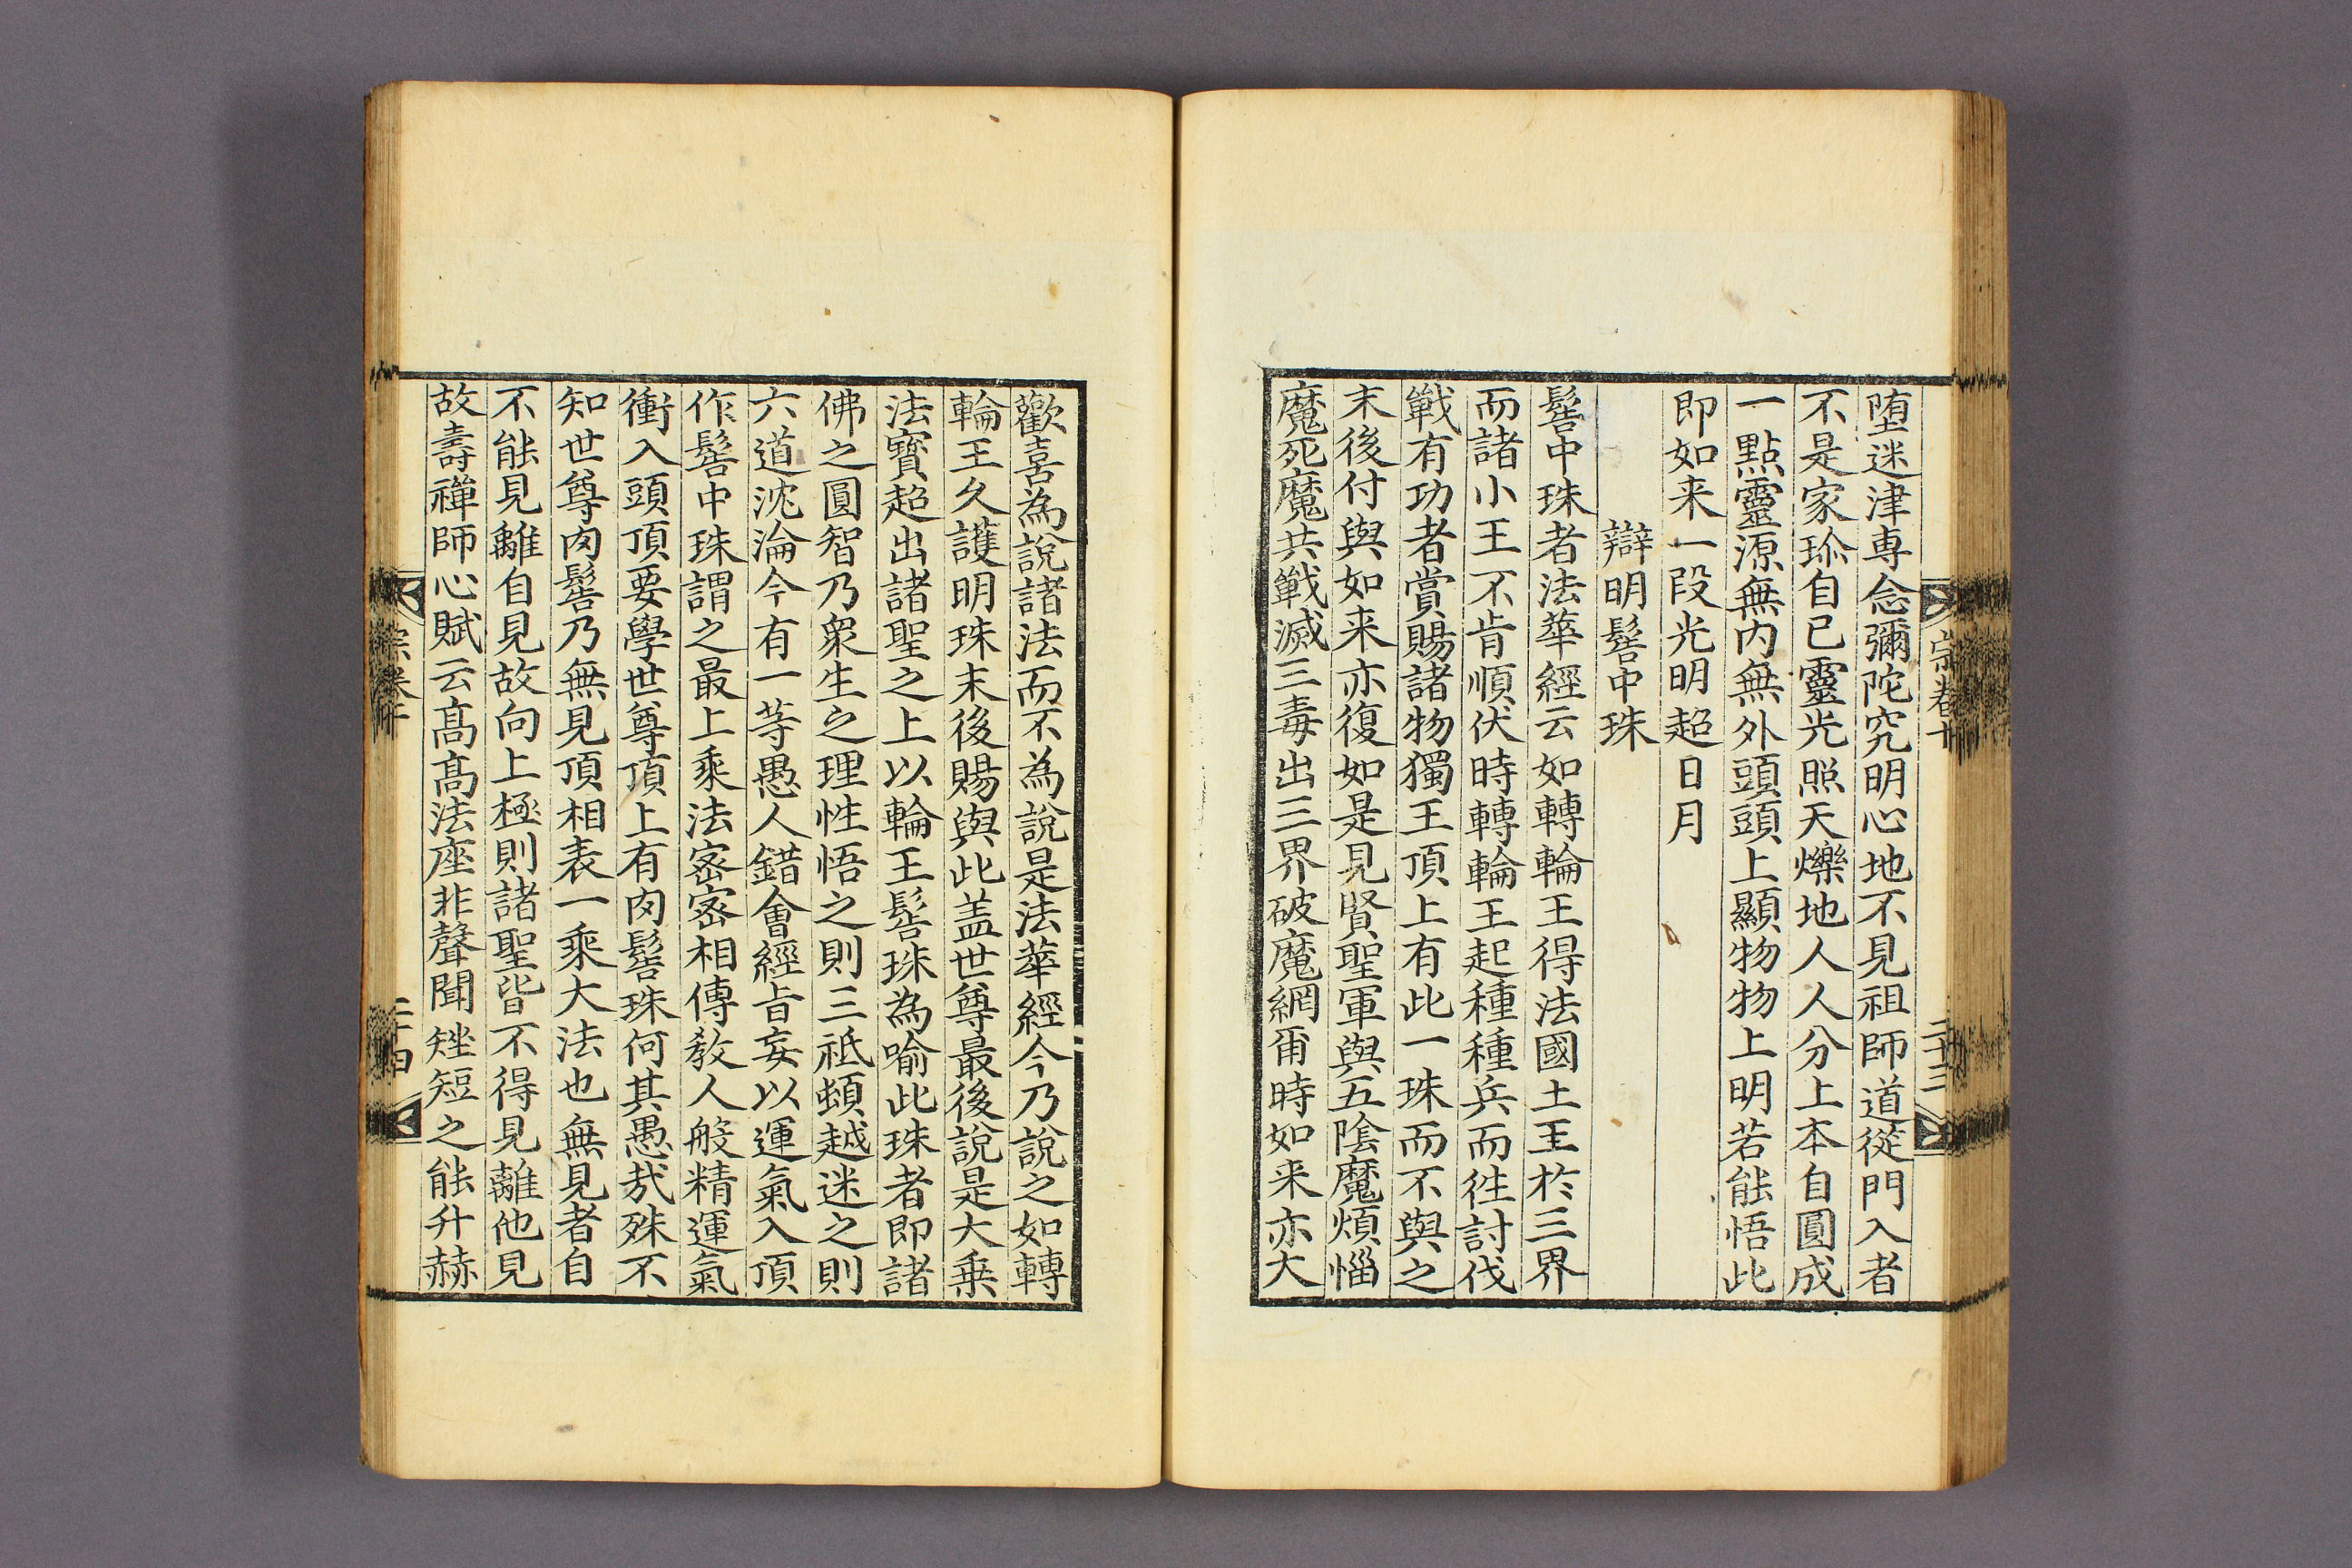 堕迷津専念彌陀究明心地不見祖師道從門入者
不是家珎自已靈光照天爍地人人分上本自圓成
一點靈源無内無外頭頭上顯物物上明若能悟此
即如来一段光明超日月
辯明髻中珠
髻中珠者法華經云如轉輪王得法國土王於三界
而諸小王不肯順伏時轉輪王起種種兵而徃討伐
戰有功者賞賜諸物獨王頂上有此一珠而不與之
末後付與如来亦復如是見賢聖軍與五陰魔煩惱
魔死魔共戰滅三毒出三界破魔網甭時如来亦大
宗卷十
二十三
歡喜為說諸法而不為說是法華經今乃說之如轉
輪王久護明珠末後賜與此盖世尊最後說是大乗
法寳超出諸聖之上以輪王髻珠為喻此珠者即諸
佛之圓智乃衆生之理性悟之則三祗頓越迷之則
六道沈淪今有一等愚人錯會經旨妄以運氣入頂
作髻中珠謂之最上乘法密密相傳教人般精運氣
衝入頭頂要學世尊頂上有肉髻珠何其愚㢤殊不
知世尊肉髻乃無見頂相表一乘大法也無見者自
不能見離自見故向上極則諸聖皆不得見離他見
故壽禪師心賦云髙髙法座非聲聞矬短之能升赫
宗卷十
二十四